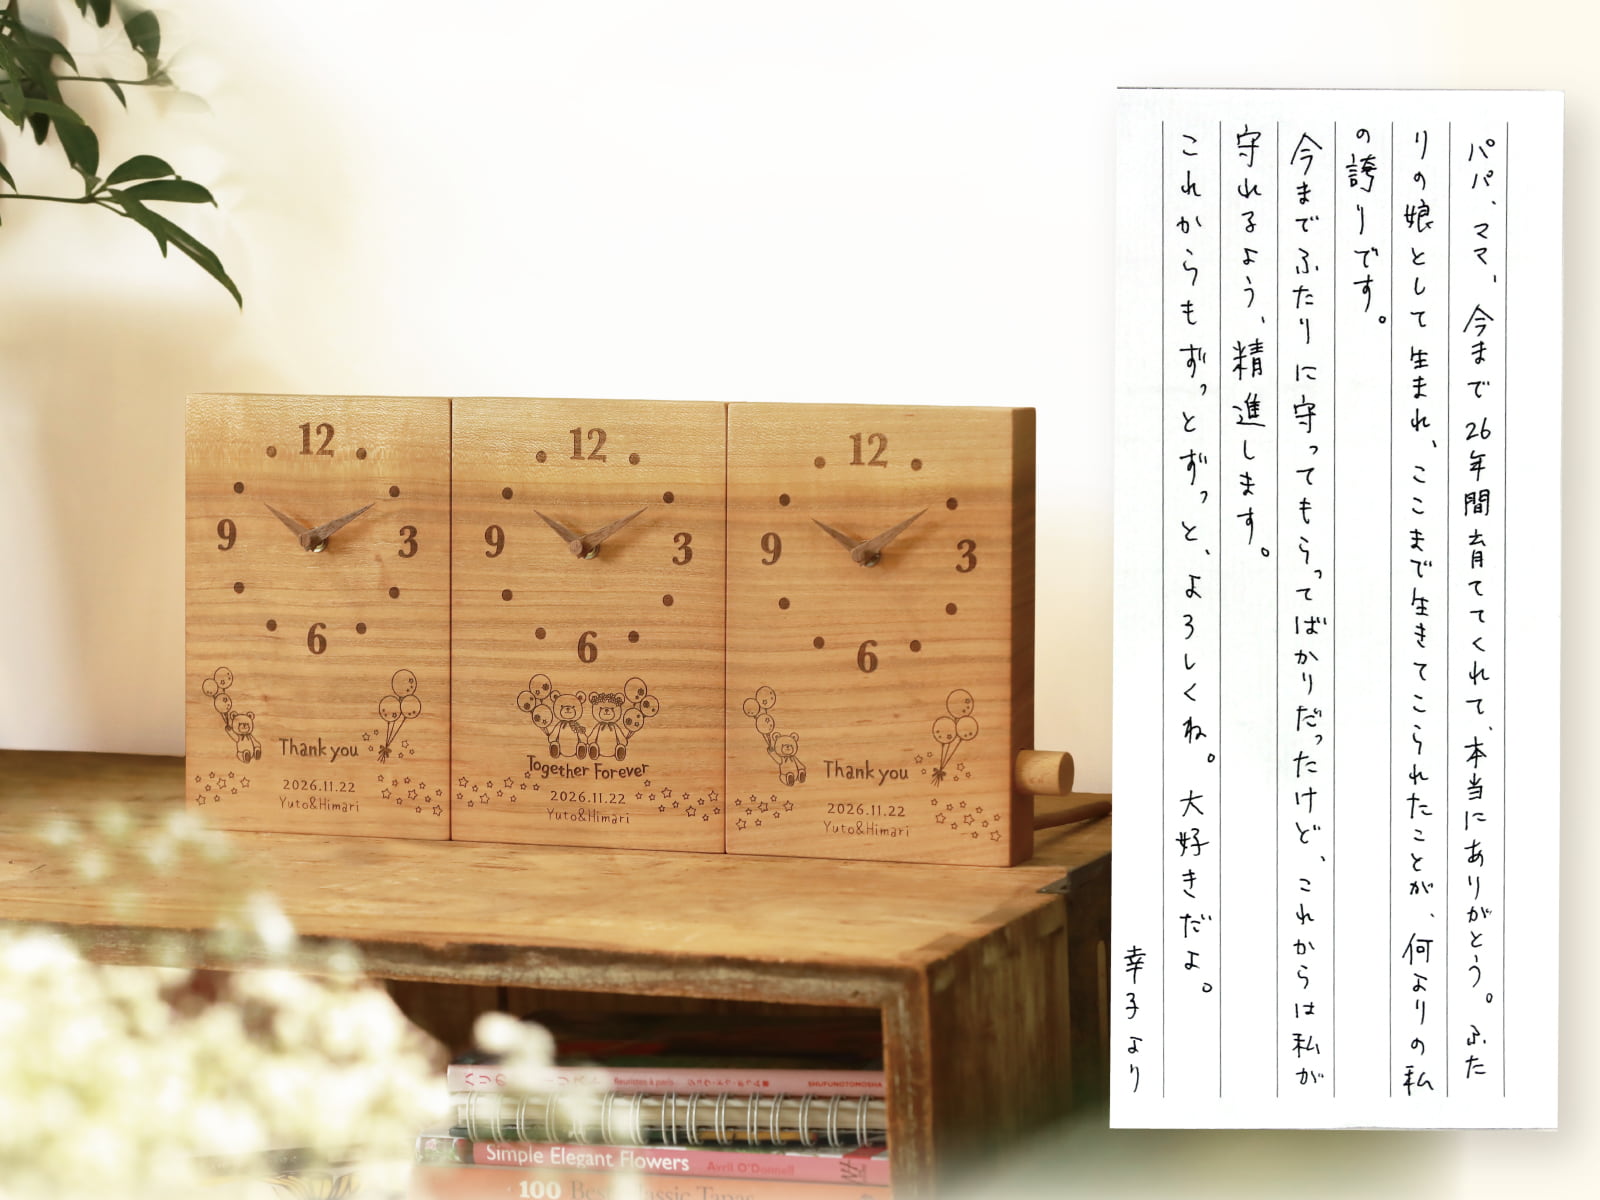 12
9
3
6
Thank you
2026.11.22
Yuto&Himari
12
9
3
6
Together Forever
2026.11.22
Yuto&Himari
12
9
3
6
Thank you
2026.11.22
Yuto&Himari
パパ、ママ、今まで26年間育ててくれて、本当にありがとう。ふた
りの娘として生まれ、ここまで生きてこられたことが、何よりの私
の誇りです。
今までふたりに守ってもらってばかりだったけど、これからは私が
守れるよう、精進します。
これからもずっとずっと、よろしくね。大好きだよ。
幸子より
fleuristes à paris
SHUFUNOTOMOSHA
Simple Elegant Flowers
Avril O'Donnell
100 Best Classic Tapas